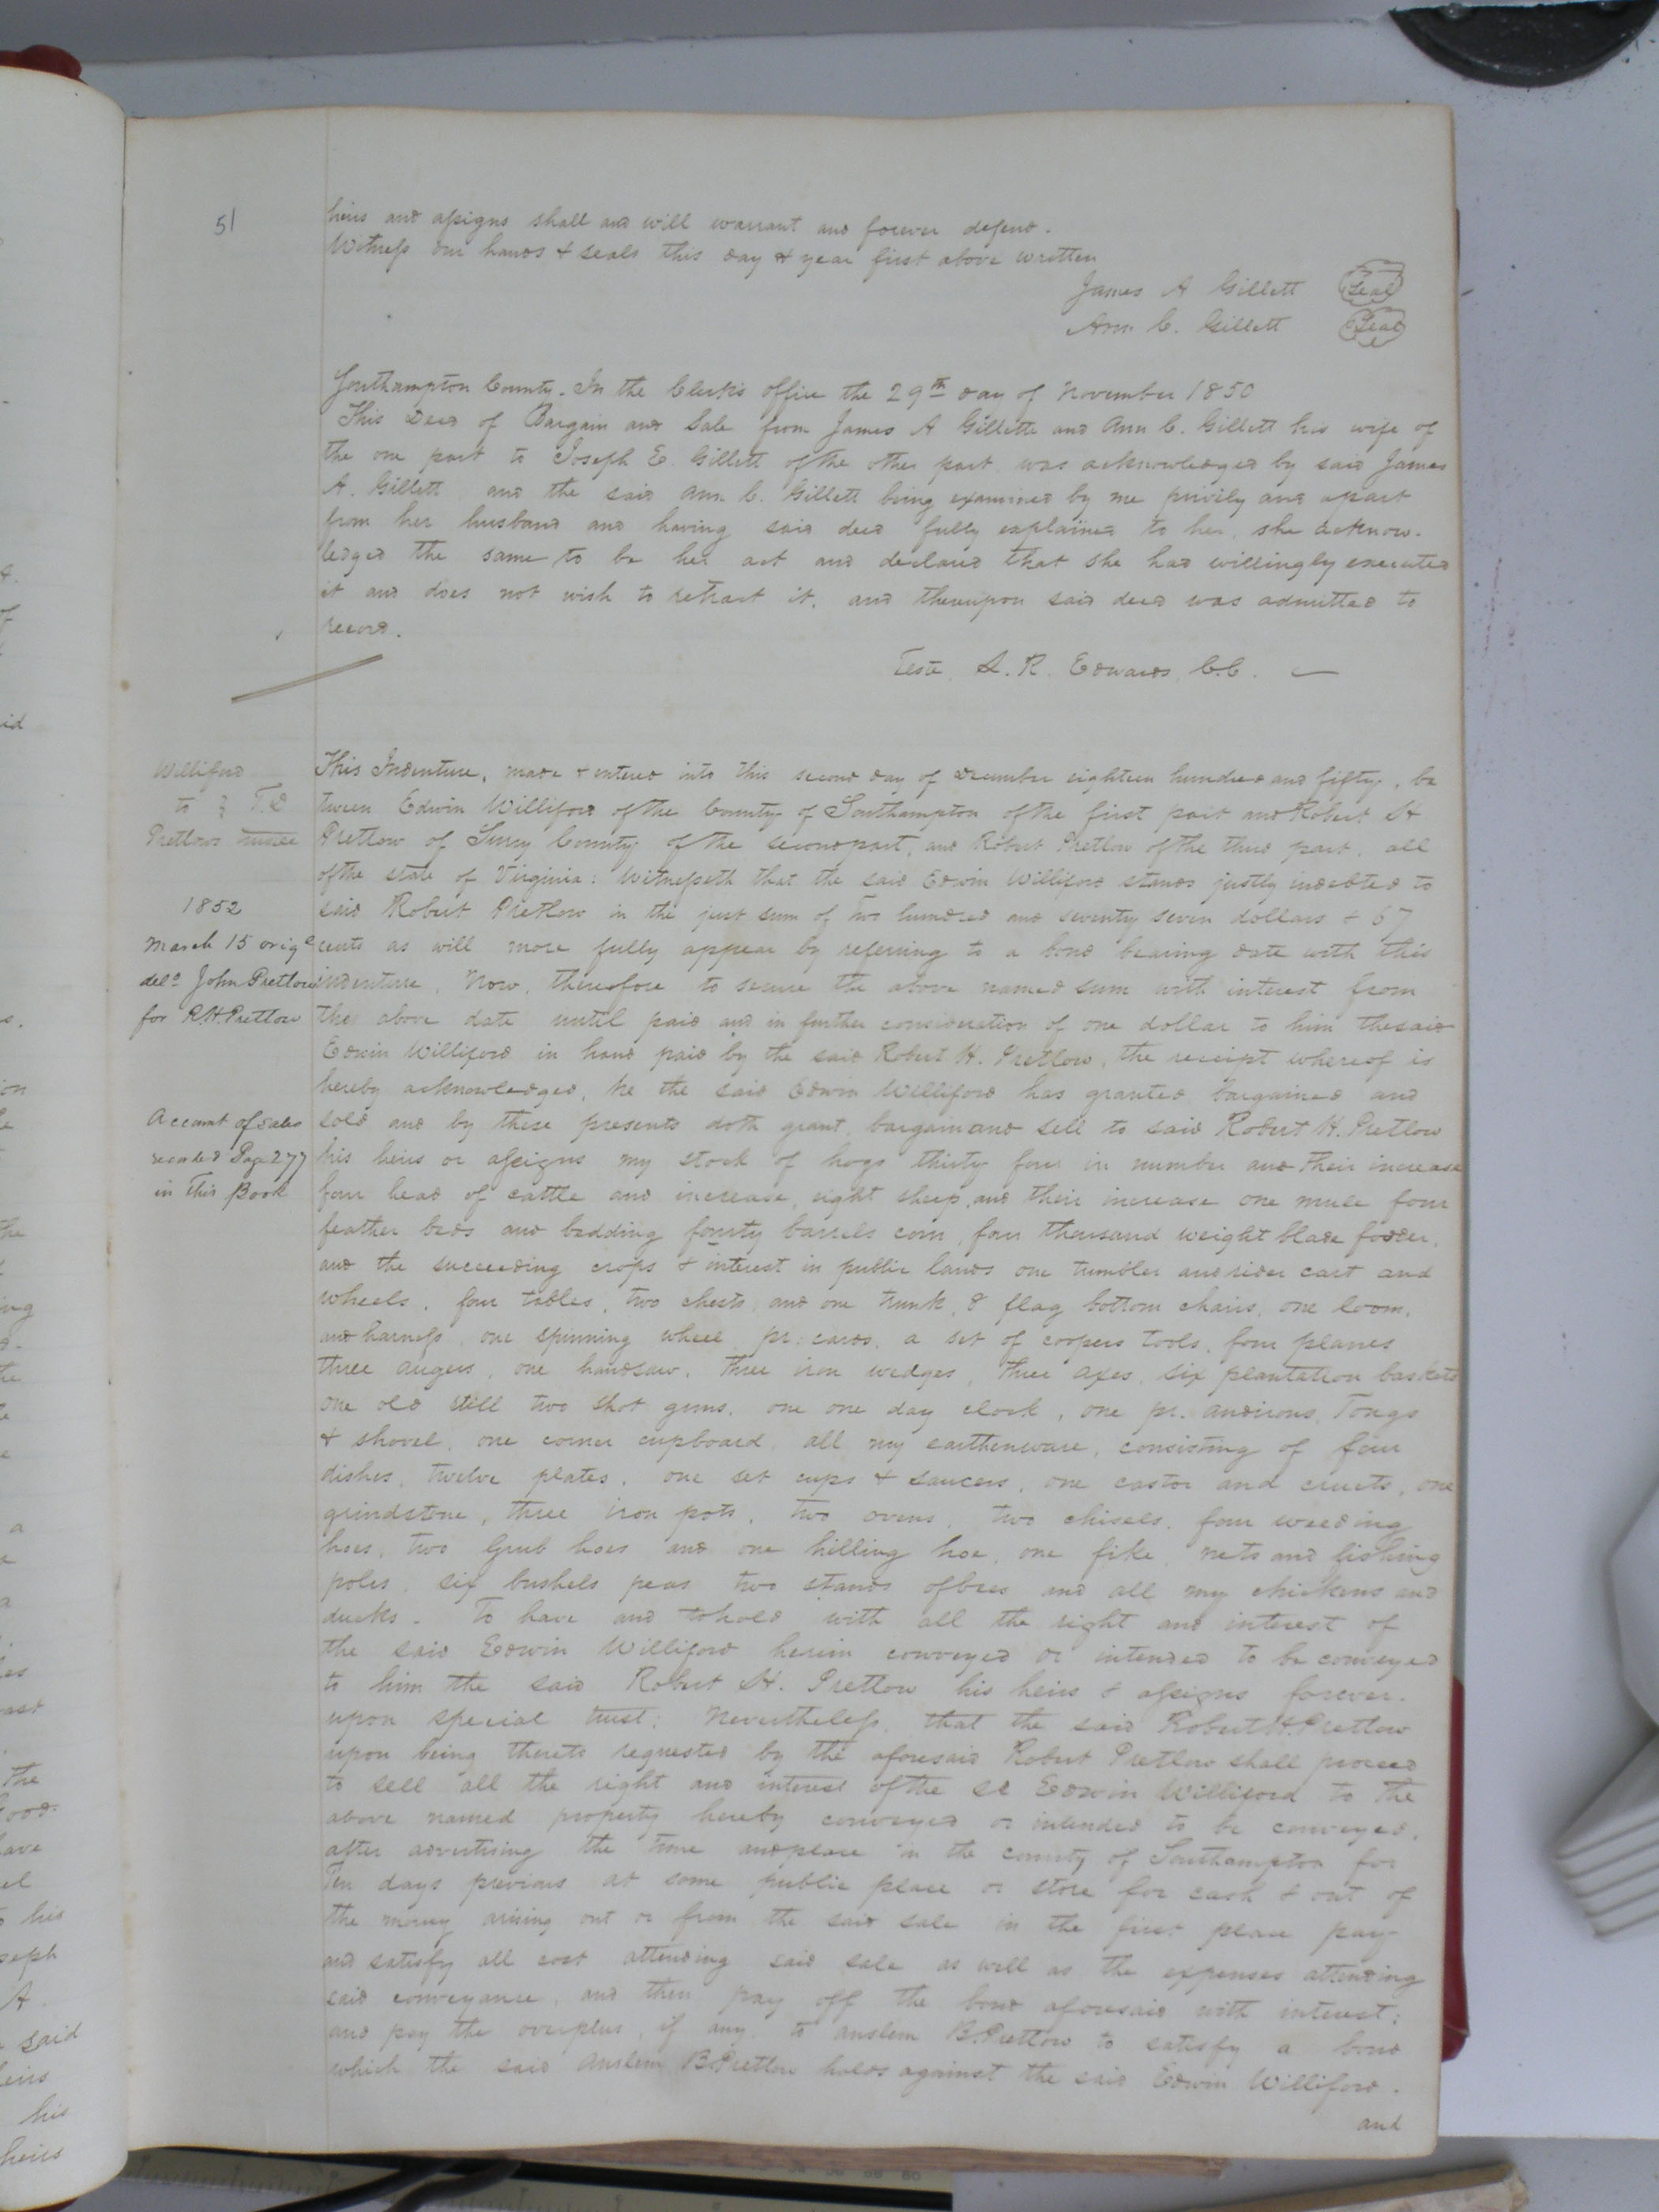 51
heirs and assigns shall and will warrant and forever defend.
Witness our hands & seals this day & year first above written
James A Gillett Seal
Ann C. Gillett Seal
Southampton County. In the Clerk's office the 29th day of November 1850
This Deed of Bargain and Sale from James A Gillette and Ann C. Gillett his wife of
the one part to Joseph E. Gillett of the other part was acknowledged by said James
A. Gillett and the said Ann C. Gillett being examined by me privily and apart
from her husband and having said deed fully explained to her, she acknow-
ledged the same to be her act and declared that she had willingly executed
it and does not wish to retract it, and thereupon said deed was admitted to
record.
Teste, L. R. Edwards, C.C.
Williford
to } T.D
Pretlows trustee
1852
March 15 orige
deld John Pretlow
for R.H. Pretlow
Account of sales
recorded Page 277
in this Book
This Indenture, made & entered into this second day of December eighteen hundred and fifty, be
tween Edwin Williford of the County of Southampton of the first part and Robert H
Pretlow of Surry County of the second part, and Robert Pretlow of the third part, all
of the state of Virginia: Witnesseth that the said Edwin Williford stands justly indebted to
said Robert Pretlow in the just sum of two hundred and seventy seven dollars & 67
cents as will more fully appear by referring to a bond bearing date with this
indenture, Now, therefore to secure the above named sum with interest from
the above date until paid and in further consideration of one dollar to him the said
Edwin Williford in hand paid by the said Robert H. Pretlow, the receipt whereof is
hereby acknowledged, he the said Edwin Williford has granted bargained and
sold and by these presents doth grant, bargain and sell to said Robert H. Pretlow
his heirs or assigns my stock of hogs thirty four in number and their increase
four head of cattle and increase, eight sheep, and their increase one mule four
feather beds and bedding fourty barrels corn, four thousand weight blade fodder,
and the succeeding crops & interest in public lands one tumbler and rider cart and
wheels, four tables, two chests, and one trunk, 8 flag bottom chairs, one loom,
and harness, one spinning wheel pr: cards, a set of coopers tools, four planes
three augers, one handsaw, three iron wedges, three axes, six plantation baskets
one old still two shot guns, one one day clock, one pr. andirons, Tongs
& shovel, one corner cupboard, all my earthenware, consisting of four
dishes, twelve plates, one set cups & saucers, one castor and cruets, one
grindstone, three iron pots, two ovens, two chisels, four weeding
hoes, two Grub hoes and one hilling hoe, one fike, nets and fishing
poles, six bushels peas two stands of bees and all my chickens and
ducks. To have and to hold with all the right and interest of
the said Edwin Williford herein conveyed or intended to be conveyed
to him the said Robert H. Pretlow his heirs & assigns forever.
upon special trust; Nevertheless, that the said Robert H. Pretlow
upon being thereto requested by the aforesaid Robert Pretlow shall proceed
to sell all the right and interest of the sd Edwin Williford to the
above named property hereby conveyed or intended to be conveyed,
after advertising the time and place in the county of Southampton for
Ten days previous at some public place or store for cash & out of
the money arising out or from the said sale in the first place pay
and satisfy all cost attending said sale as well as the expenses attending
said conveyance, and then pay off the bond aforesaid with interest;
and pay the overplus, if any, to Anslem B. Pretlow to satisfy a bond
which the said Anslem B. Pretlow holds against the said Edwin Williford.
and